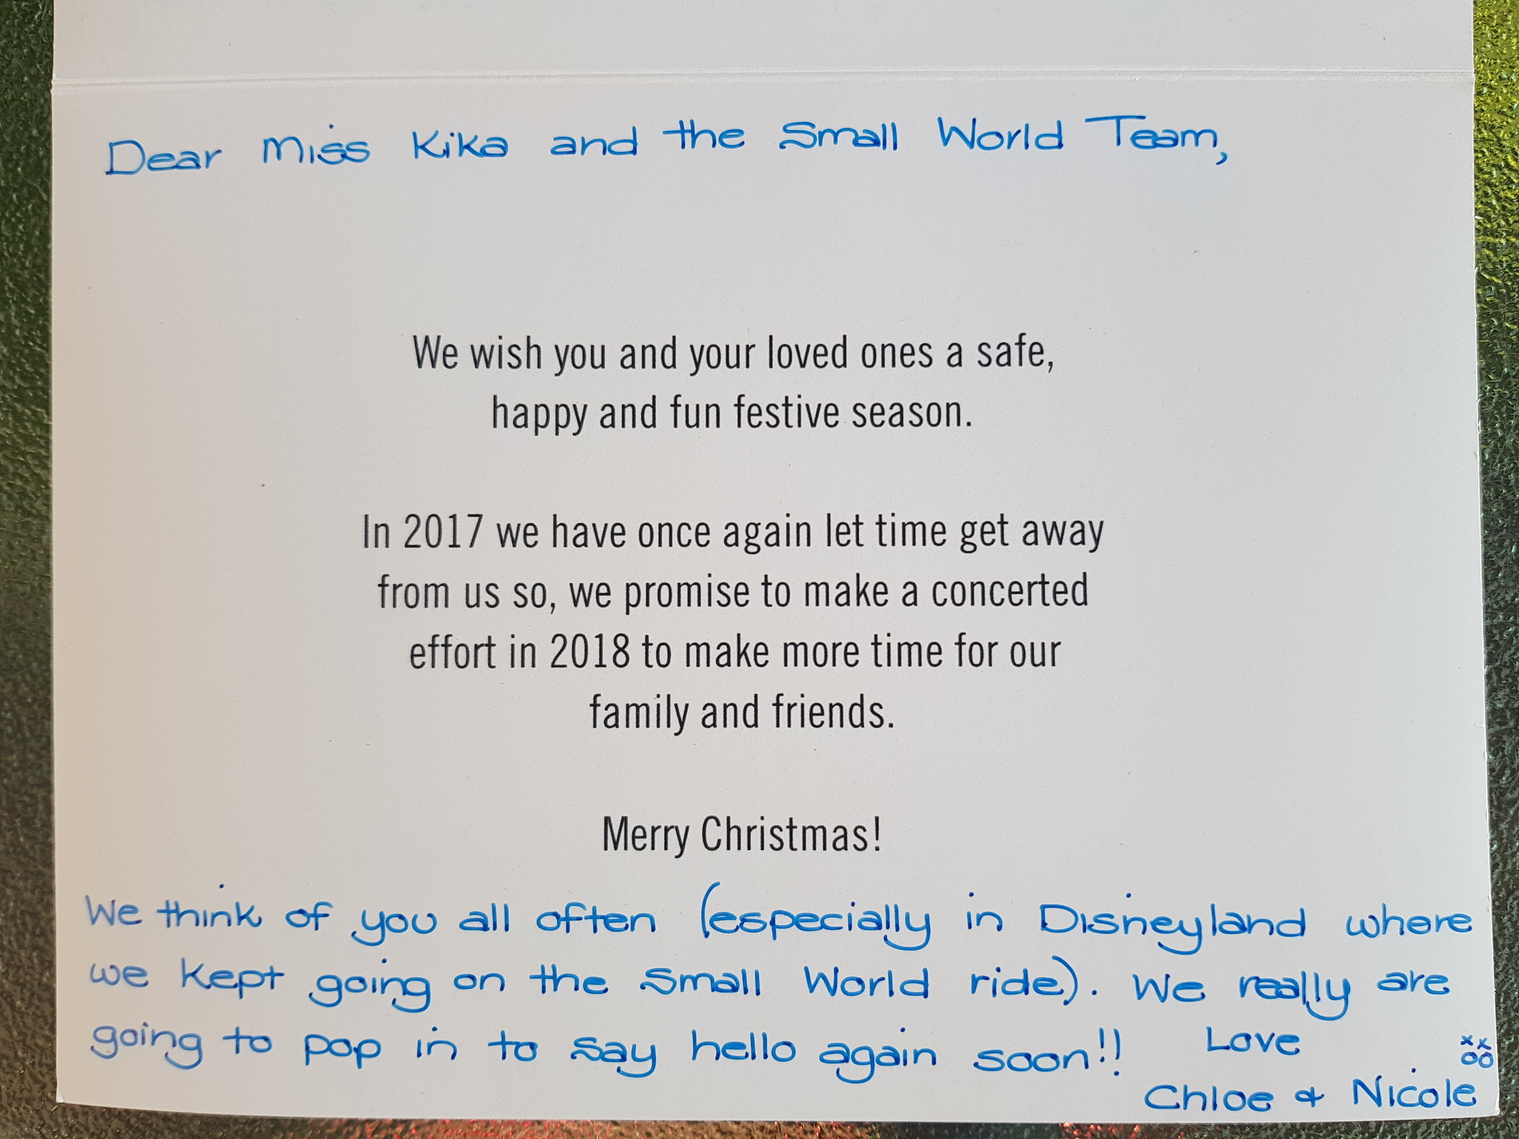 Dear Miss Kika and the Small World Team,
We wish you and your loved ones a safe,
happy and fun festive season.
In 2017 we have once again let time get away
from us so, we promise to make a concerted
effort in 2018 to make more time for our
family and friends.
Merry Christmas!
We think of you all often (especially in Disneyland where
we kept going on the Small World ride). We really are
going to pop in to say hello again soon!! Love
xx
oo
Chloe & Nicole